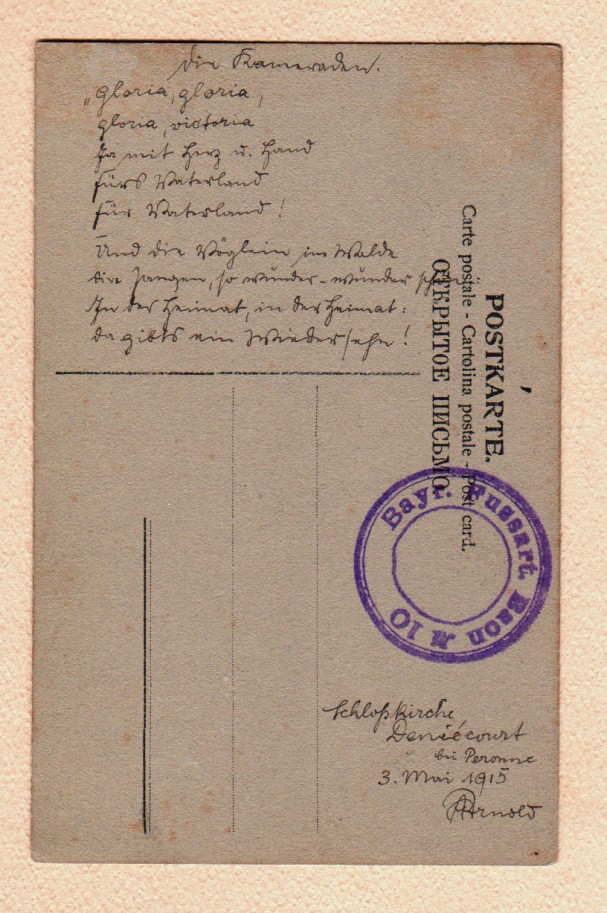 Die Kameraden.
„Gloria, gloria,
gloria, victoria
Ja mit Herz u. Hand
fürs Vaterland
für Vaterland!
Und die Vöglein im Walde
die sangen, so wunder-wunderschön
In der Heimat, in der Heimat:
da gibts ein Wiedersehn!
POSTKARTE.
Carte postale - Cartolina postale - Post card.
ОТКРЫТОЕ ПИСЬМО.
Bayr. Fussart. Bson № 10
Schloßkirche,
Deniécourt
bei Peronne
3. Mai 1915
Arnold